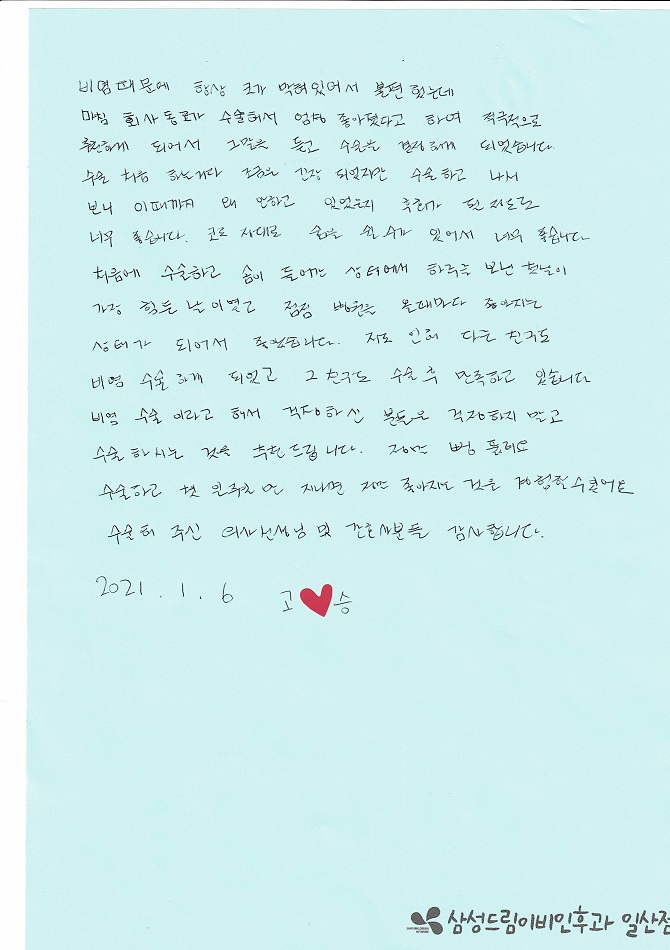 비염때문에 항상 코가 막혀있어서 불편했는데
마침 회사동료가 수술해서 엄청 좋아졌다고 하며 적극적으로
추천하게 되어서 그말을 듣고 수술을 결정하게 되었습니다.
수술 처음 하는거다 조금은 긴장 되었지만 수술하고 나서
보니 이때까지 왜 안하고 있었는지 후회가 될 정도로
너무 좋습니다. 코로 제대로 숨을 쉴 수가 있어서 너무 좋습니다.
처음에 수술하고 솜이 들어간 상태에서 하루를 보낸 첫날이
가장 힘든 날이였고 점점 병원을 올때마다 좋아지는
상태가 되어서 추천합니다. 저로 인해 다른 친구도
비염 수술하게 되었고 그 친구도 수술 후 만족하고 있습니다
비염 수술이라고 해서 걱정하신 분들은 걱정하지 말고
수술 하시는 것을 추천드립니다. 코가 뻥 뚫려요
수술하고 첫 일주일만 지나면 점점 좋아지는 것을 경험할수있어요
수술해 주신 의사선생님 및 간호사분들 감사합니다.
2021. 1. 6 고 승
삼성드림이비인후과 일산점